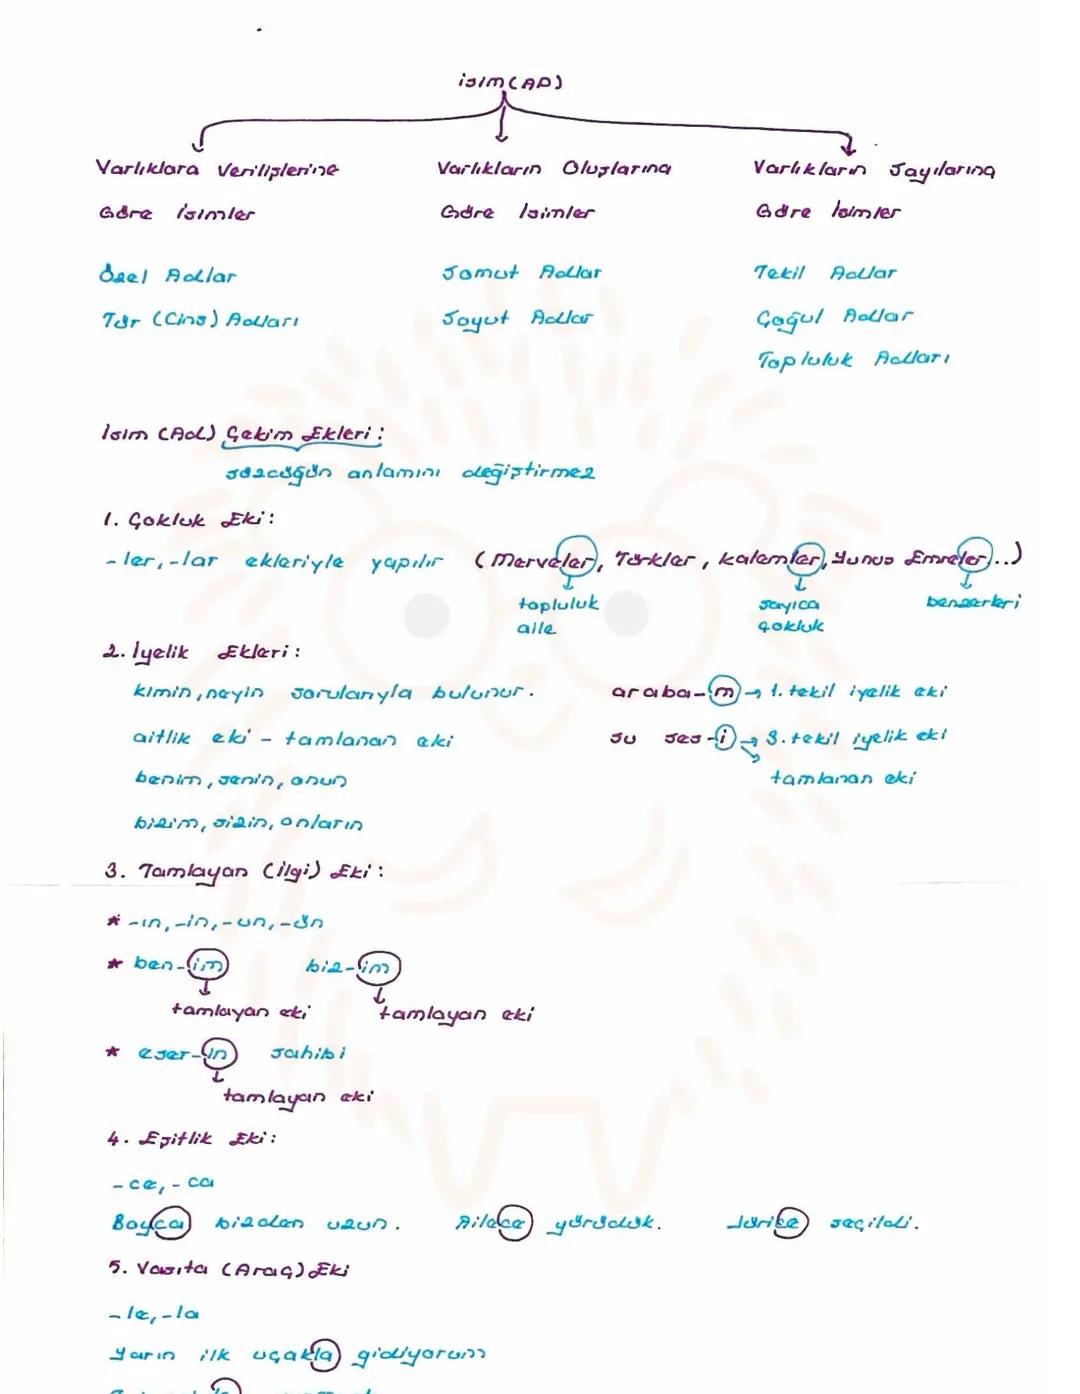 isim (AD)
Varlıklara Verilişlerine Varlıkların Oluşlarına Varlıkların Sayılarına
Göre İsimler Göre İsimler Göre İsimler
Özel Adlar Somut Adlar Tekil Adlar
Tür (Cins) Adları Soyut Adlar Çoğul Adlar
Topluluk Adları
İsim (Ad) Çekim Ekleri:
sözcüğün anlamını değiştirmez
1. Çokluk Eki:
-ler, -lar ekleriyle yapılır (Merveler, Türkler, kalemler, Yunus Emreler...)
topluluk sayıca benzerleri
aile çokluk
2. İyelik Ekleri:
kimin, neyin sorularıyla bulunur. araba-m → 1. tekil iyelik eki
aitlik eki - tamlanan eki su ses-i → 3. tekil iyelik eki
benim, senin, onun tamlanan eki
bizim, sizin, onların
3. Tamlayan (ilgi) Eki:
* -ın, -in, -un, -ün
* ben-im biz-im
tamlayan eki tamlayan eki
* eser-in sahibi
tamlayan eki
4. Eşitlik Eki:
-ce, -ca
Boyca bizden uzun. Ailece yürüdük. Jürice seçildi.
5. Vasıta (Araç) Eki
-le, -la
Yarın ilk uçakla gidiyorum